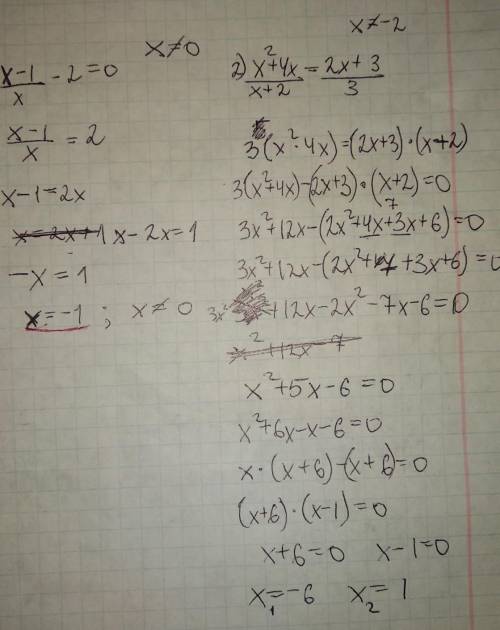 x≠0
x-1/x - 2=0
x-1/x = 2
x-1=2x
x=2x+1 x-2x=1
-x=1
x=-1; x≠0
x≠-2
2) x²+4x/x+2 = 2x+3/3
3(x²·4x)=(2x+3)·(x+2)
3(x²+4x)-(2x+3)·(x+2)=0
7
3x²+12x-(2x²+4x+3x+6)=0
3x²+12x-(2x²+ +3x+6)=0
3x² +12x-2x²-7x-6=0
x²+12x-7
x²+5x-6=0
x²+6x-x-6=0
x·(x+6)-(x+6)=0
(x+6)·(x-1)=0
x+6=0 x-1=0
x₁=-6 x₂=1